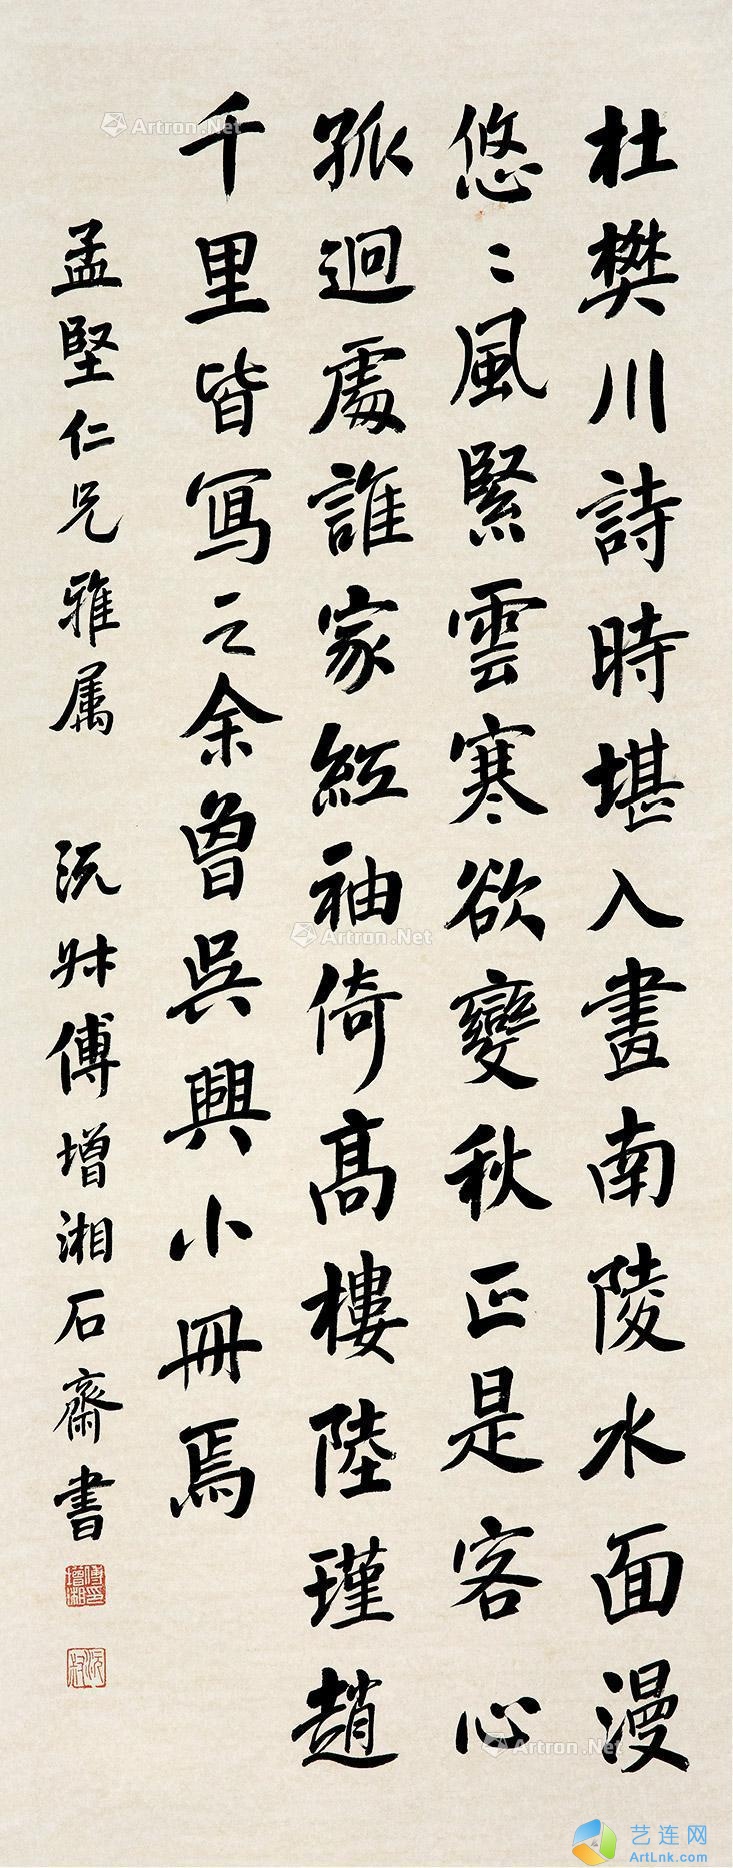 杜樊川詩時堪入畫南陵水面漫
悠〻風緊雲寒欲變秋正是客心
孤迥處誰家紅袖倚高樓陸瑾趙
千里皆寫之余曾吳興小冊焉
孟堅仁兄雅属
沅叔傅增湘石齋書
傅增湘印
沅叔
Artron.Net
Artron.Net
Artron.Net
艺连网
ArtLnk.com